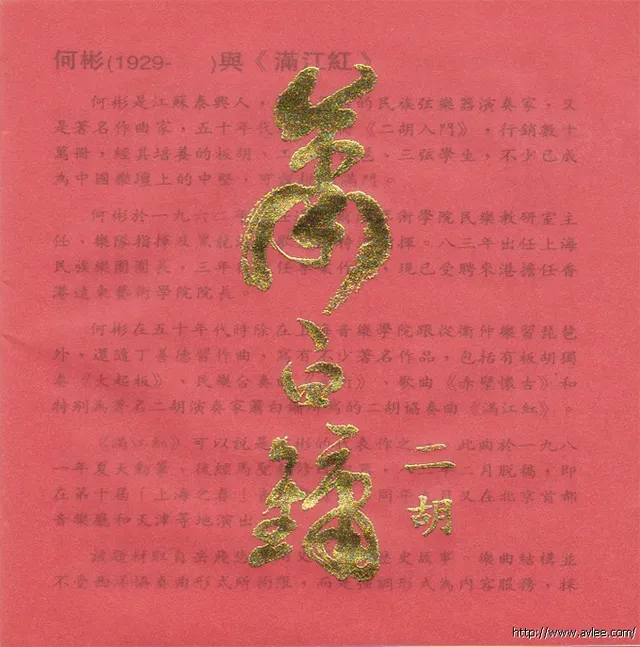 何彬(1929- )與《滿江紅》
何彬是江蘇泰興人，的民族弦樂器演奏家，又
是著名作曲家，五十年代《二胡入門》，行銷數十
萬冊，經其培養的板胡、二、三弦學生，不少已成
為中國樂壇上的中堅，可門。
何彬於一九六二年術學院民樂教研室主
任、樂隊指揮及揮。八三年出任上海
民族樂團團長，三年作，現已受聘來港擔任香
港遠東藝術學院院長。
何彬在五十年代時除在上海音樂學院跟從衞仲樂習琵琶
外，還隨丁善德習作曲，寫有不少著名作品，包括有板胡獨
奏《大起板》、民樂合奏》、歌曲《赤壁懷古》和
特別為著名二胡演奏家蕭白鏞的二胡協奏曲《滿江紅》。
《滿江紅》可以說是何彬的代表作之一，此曲於一九八
一年夏天動筆，後經馬聖二月脫稿，即
在第十屆「上海之春」同年又在北京首都
音樂廳和天津等地演出
該題材取自岳飛歷史故事。樂曲結構並
不受西洋協奏曲形式所拘限，而是強調形式為內容服務，採
蕭白鏞
二胡
http://www.avlee.com/